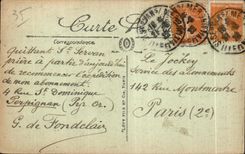 35
Carte
Correspondance
Quittant St Servan
prière à partir d'aujourd'hui
de recommencer l'expédition
de mon abonnement :
4 Rue St Dominique
Perpignan (Pyr. Or.)
G. de Fondclair
Le Jockey
Service des abonnements
142 Rue Montmartre
Paris (2e)